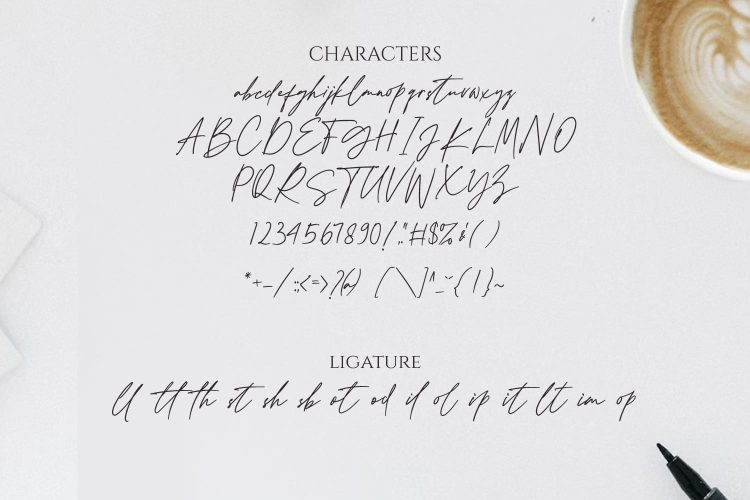 CHARACTERS
abcdefghijklmnopqrstuvwxyz
ABCDEFGHIJKLMNO
PQRSTUVWXYZ
1234567890!.,"#$%&'()
*+-/:;<=>?@[\]^_{|}~
LIGATURE
ll tt th st sh sb ot od il ol ip it lt im op